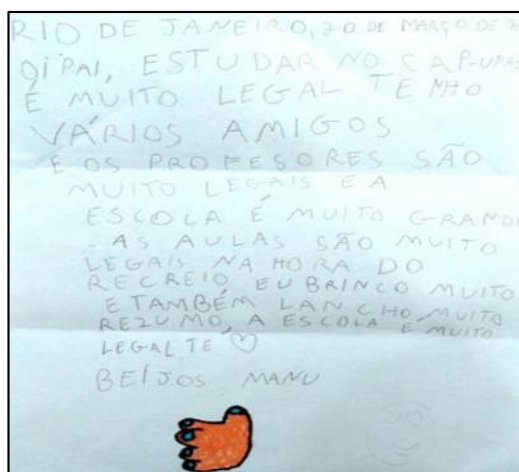 RIO DE JANEIRO, 20 DE MARÇO DE
OI PAI, ESTUDAR NO
É MUITO LEGAL TENHO
VÁRIOS AMIGOS
E OS PROFESORES SÃO
MUITO LEGAIS E A
ESCOLA É MUITO GRANDE
AS AULAS SÃO MUITO
LEGAIS NA HORA DO
RECREIO EU BRINCO MUITO
E TAMBÉM LANCHO MUITO
REZUMO, A ESCOLA É MUITO
LEGAL TE ♡
BEIJOS MANU